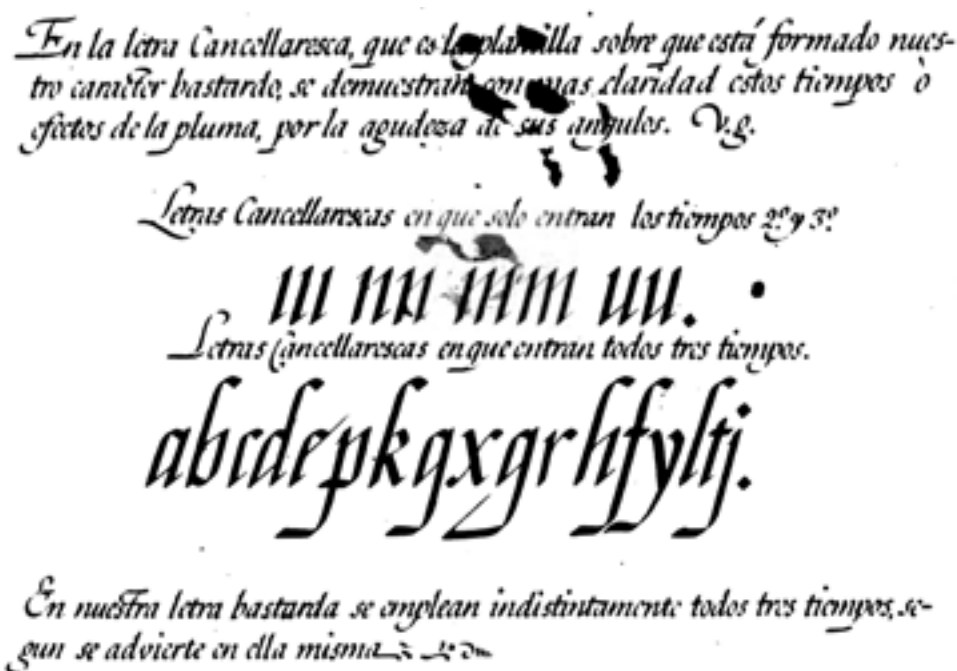 En la letra Cancellaresca, que es la plantilla sobre que está formado nues-
tro carácter bastardo, se demuestran con mas claridad estos tiempos ò
efectos de la pluma, por la agudeza de sus angulos. V.g.
Letras Cancellarescas en que solo entran los tiempos 2º y 3º
ııı nn mm uu.
Letras Cancellarescas en que entran todos tres tiempos.
abcdepkqxgrhfyltj.
En nuestra letra bastarda se emplean indistintamente todos tres tiempos, se-
gun se advierte en ella misma